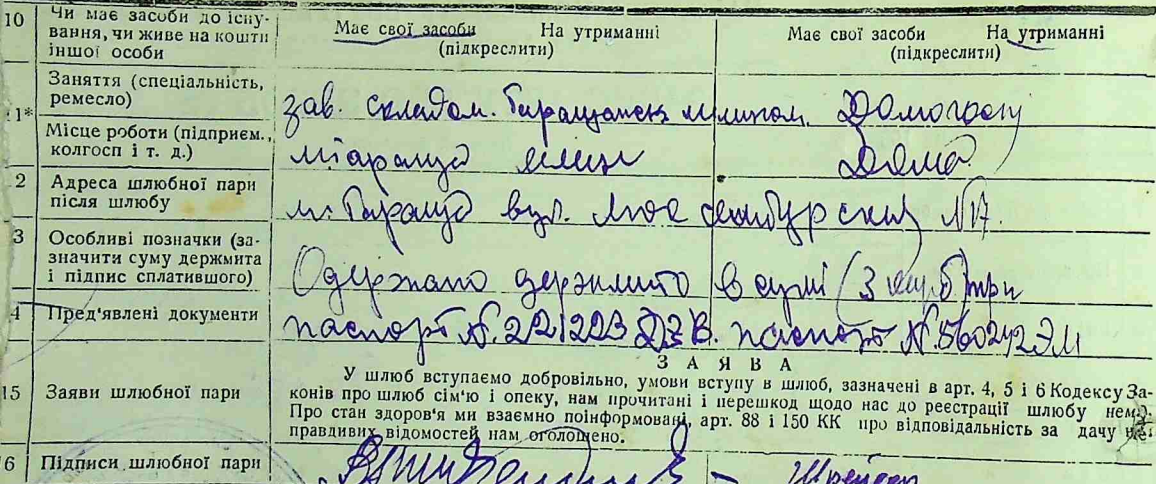 10 Чи має засоби до існу-
вання, чи живе на кошти
іншої особи
Має свої засоби На утриманні
(підкреслити)
Має свої засоби На утриманні
(підкреслити)
11* Заняття (спеціальність,
ремесло)
зав. складом. Таращанск млином. Домогосп
Місце роботи (підприєм.,
колгосп і т. д.)
м Тараща млин Дома
2 Адреса шлюбної пари
після шлюбу
м. Тараща вул. Люксембурский N17.
3 Особливі позначки (за-
значити суму держмита
і підпис сплатившого)
Одержано держмито в сумі (3 руб) три
4 Пред'явлені документи
паспорт N. 221223 ДЗВ. паспорт N. 560242 ЭМ
15 Заяви шлюбної пари
З А Я В А
У шлюб вступаємо добровільно, умови вступу в шлюб, зазначені в арт. 4, 5 і 6 Кодексу За-
конів про шлюб сім'ю і опеку, нам прочитані і перешкод щодо нас до реєстрації шлюбу нема.
Про стан здоров'я ми взаємно поінформовані, арт. 88 і 150 КК про відповідальність за дачу не-
правдивих відомостей нам оголошено.
6 Підписи шлюбної пари